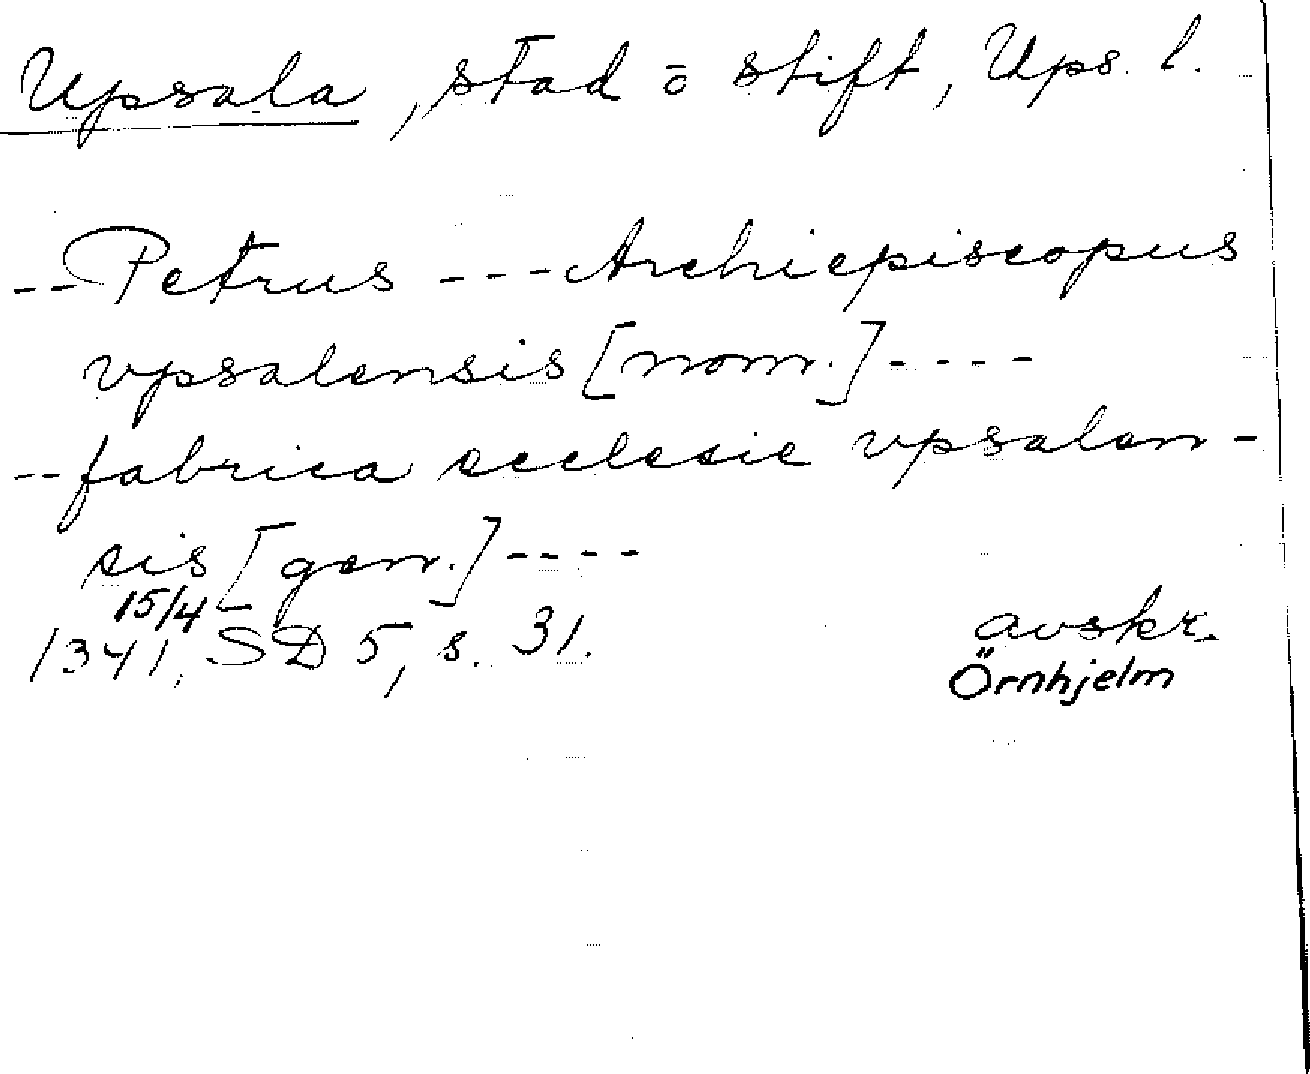 Upsala, stad o stift, Ups. l.
--Petrus --- Archiepiscopus
vpsalensis [nom.] ----
--fabrica ecclesie vpsalen-
sis [gen.] ----
15/4
1341, SD 5, s. 31.
avskr.
Örnhjelm